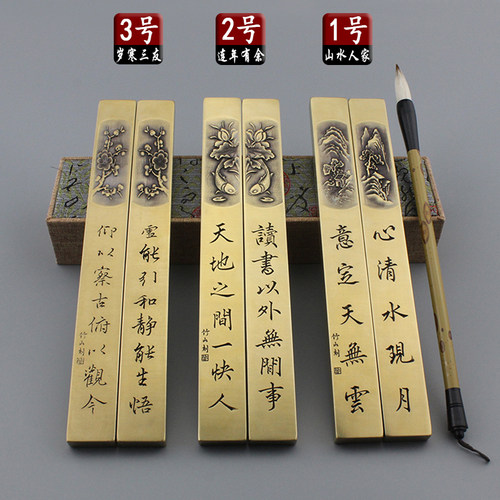 3号
岁寒三友
2号
连年有余
1号
山水人家
虛能引和靜能生悟
仰以察古俯以觀今
竹山刻
讀書以外無閒事
天地之間一快人
竹山刻
心清水現月
意定天無雲
竹山刻